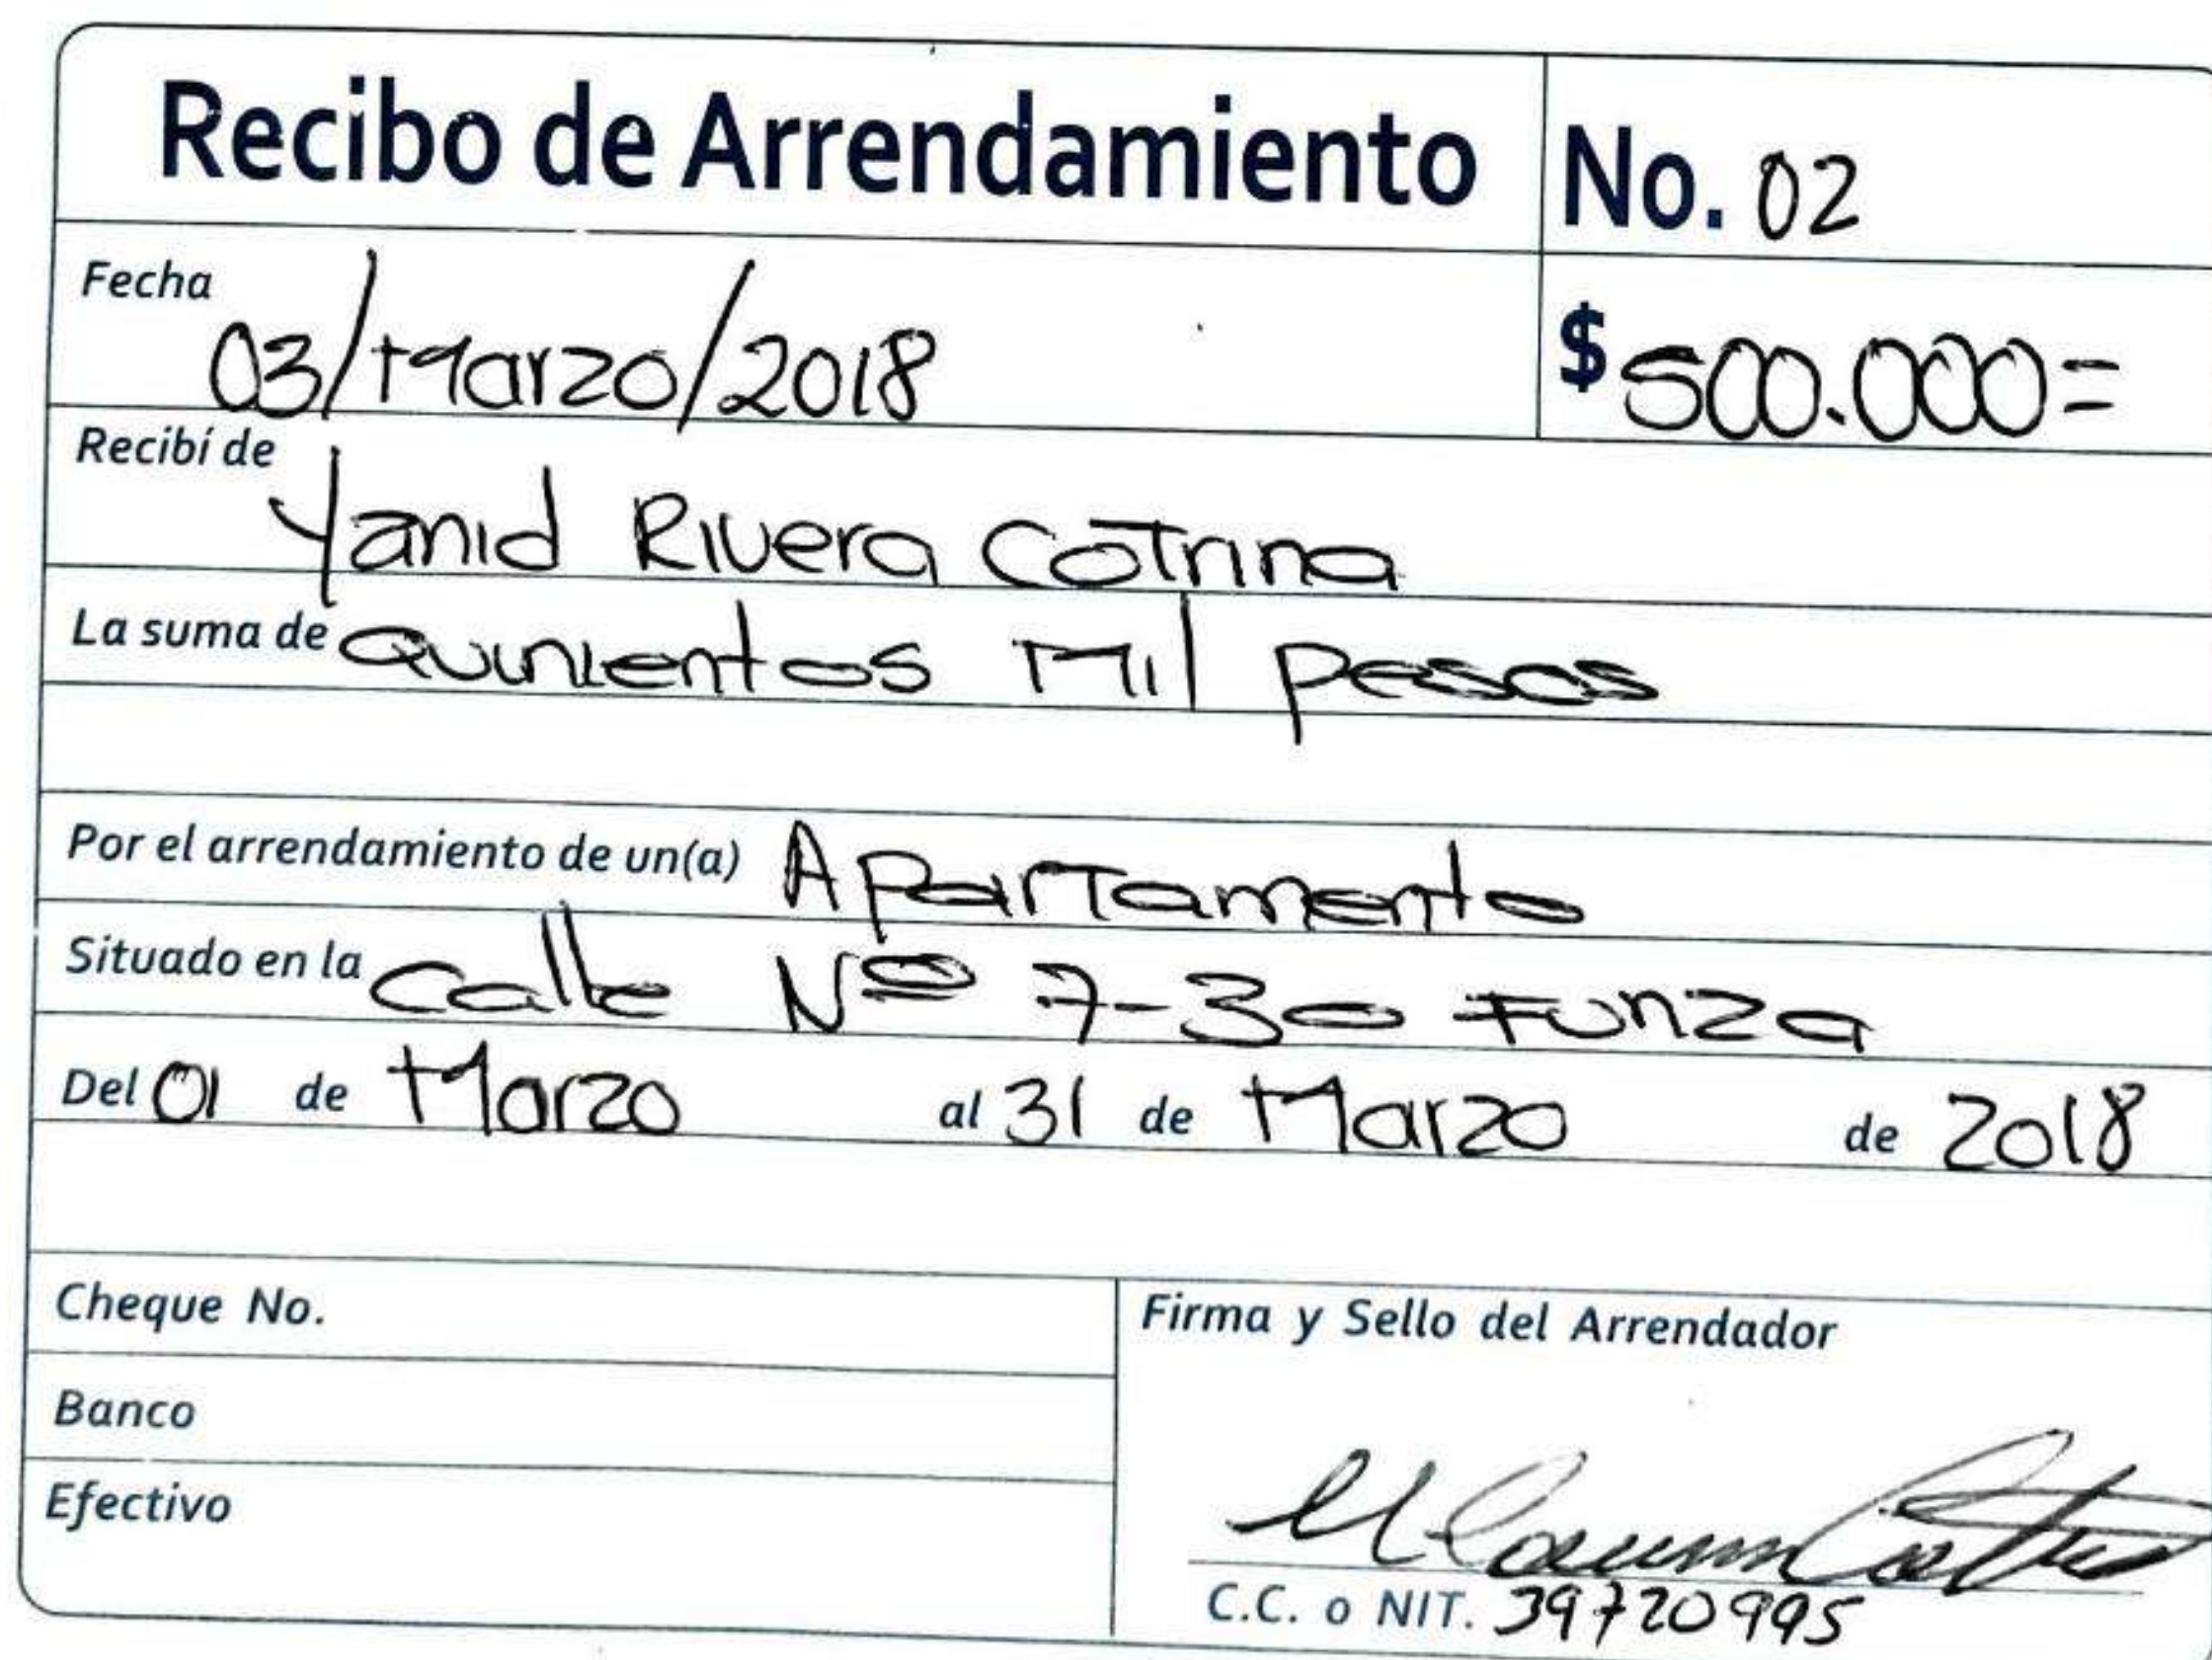 Recibo de Arrendamiento No. 02
Fecha 03/Marzo/2018 $500.000=
Recibí de Yanid Rivera Cotrina
La suma de Quinientos Mil pesos
Por el arrendamiento de un(a) Apartamento
Situado en la Calle Nº 7-30 Funza
Del 01 de Marzo al 31 de Marzo de 2018
Cheque No.
Firma y Sello del Arrendador
Banco
Efectivo
C.C. o NIT. 39720995